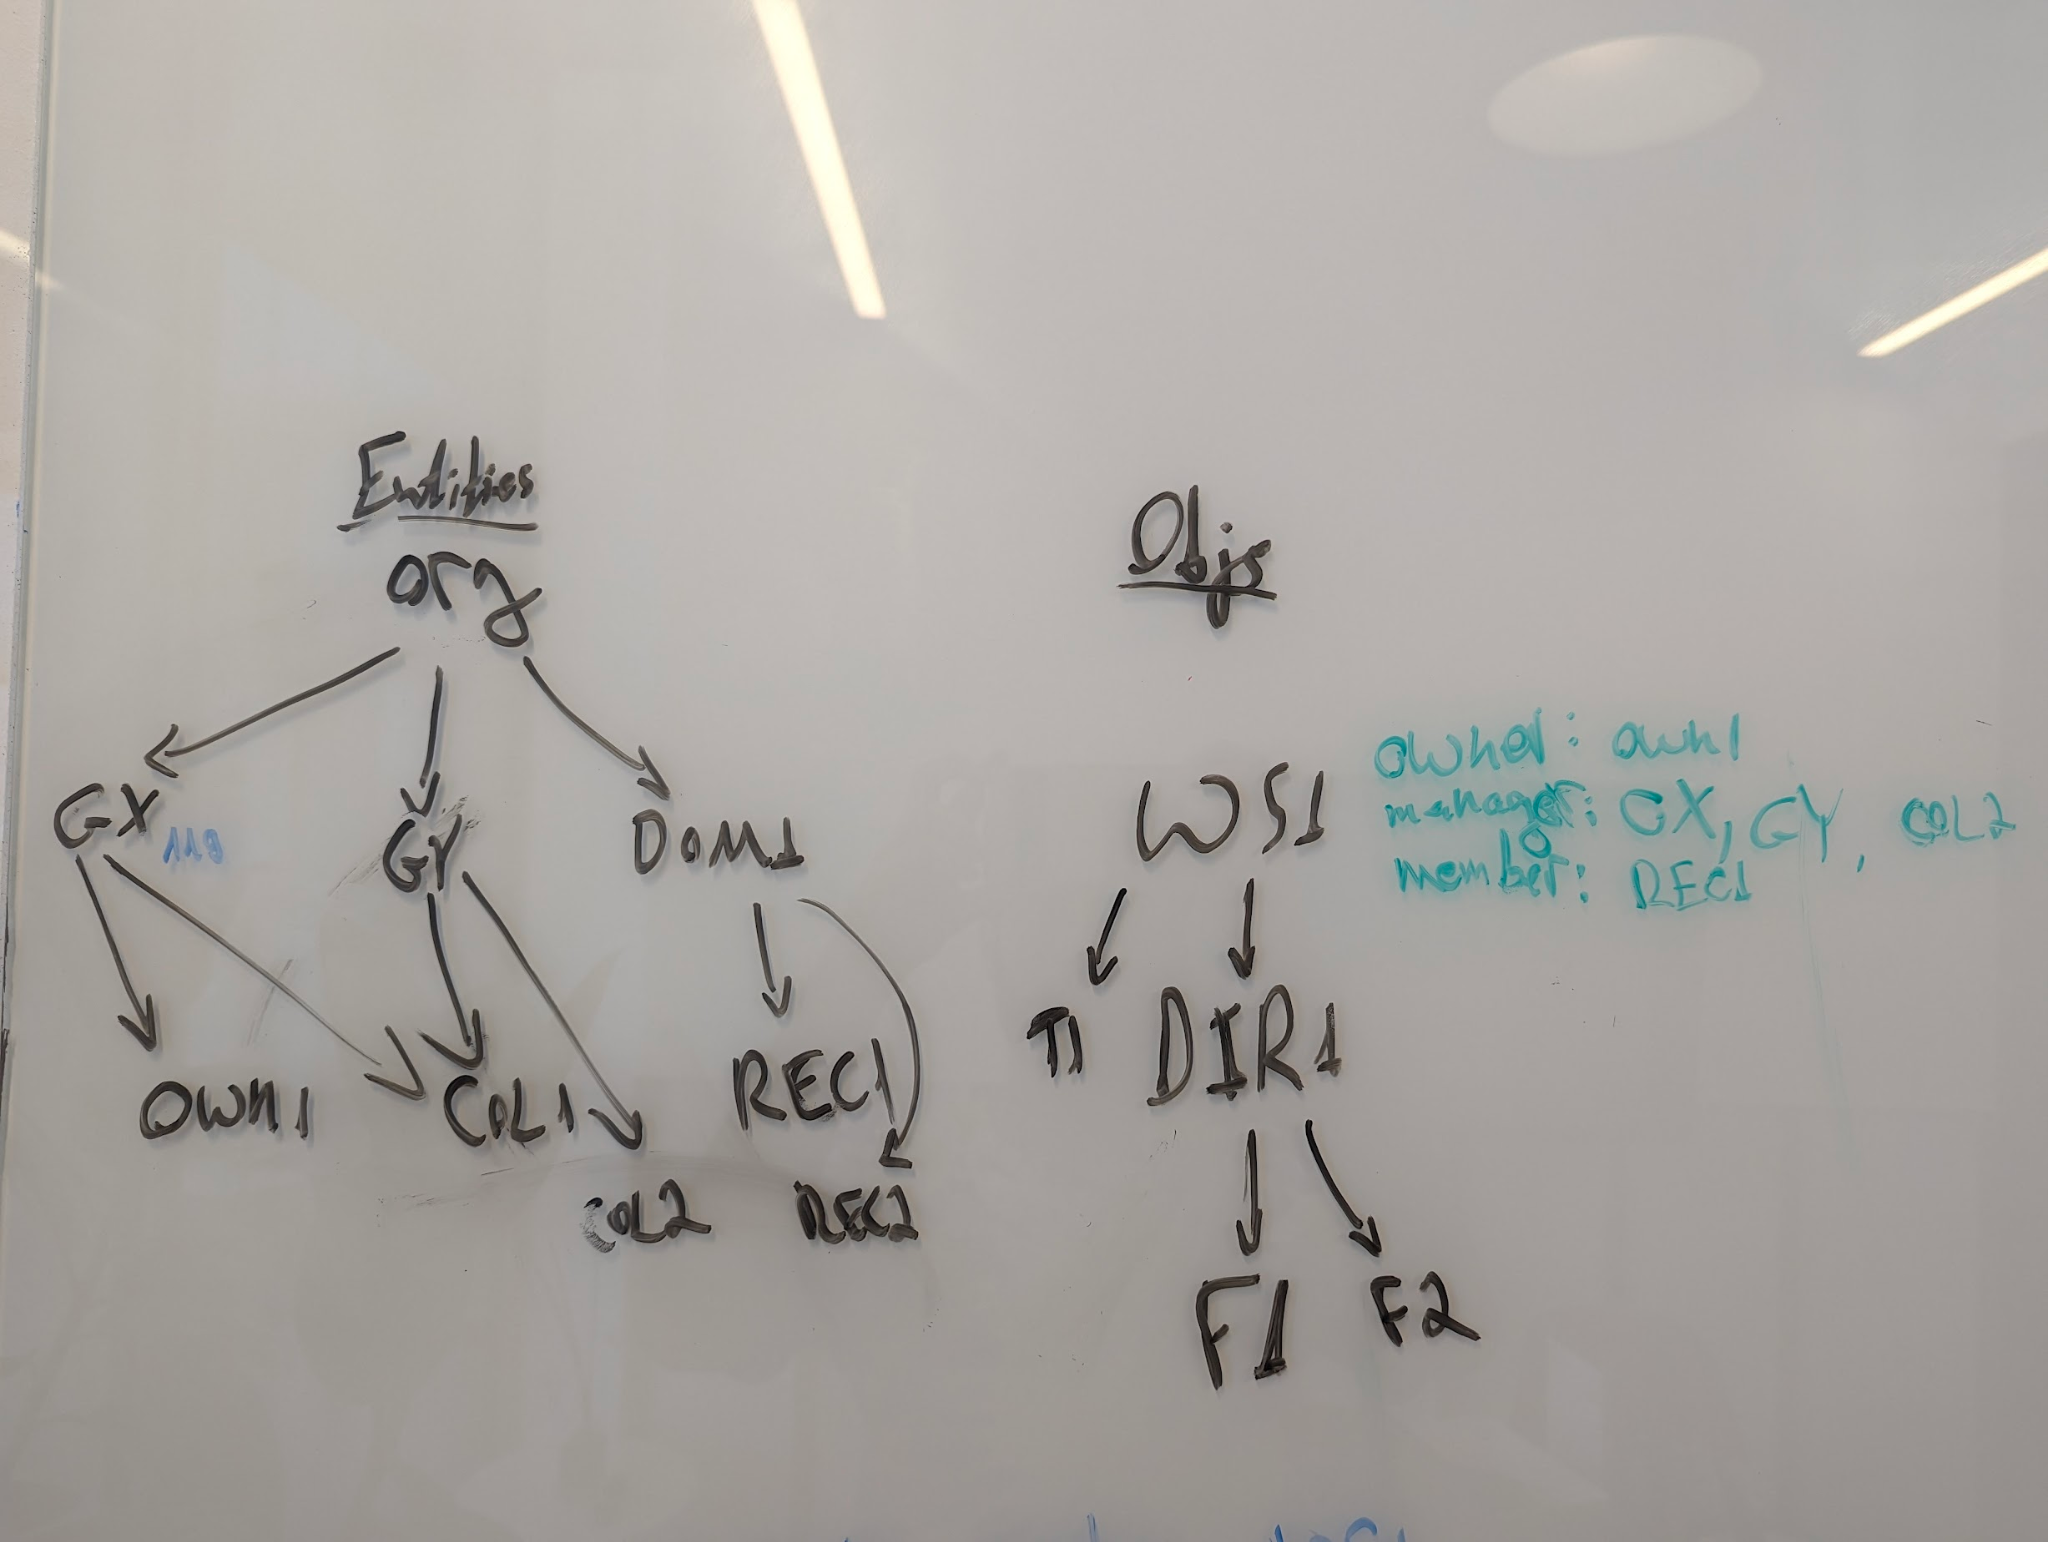 Entities
org
GX
110
GY
DOM1
OWN1
COL1
COL2
REC1
REC2
Objs
WS1
owner: own1
manager: GX, GY, COL2
member: REC1
T1
DIR1
F1
F2